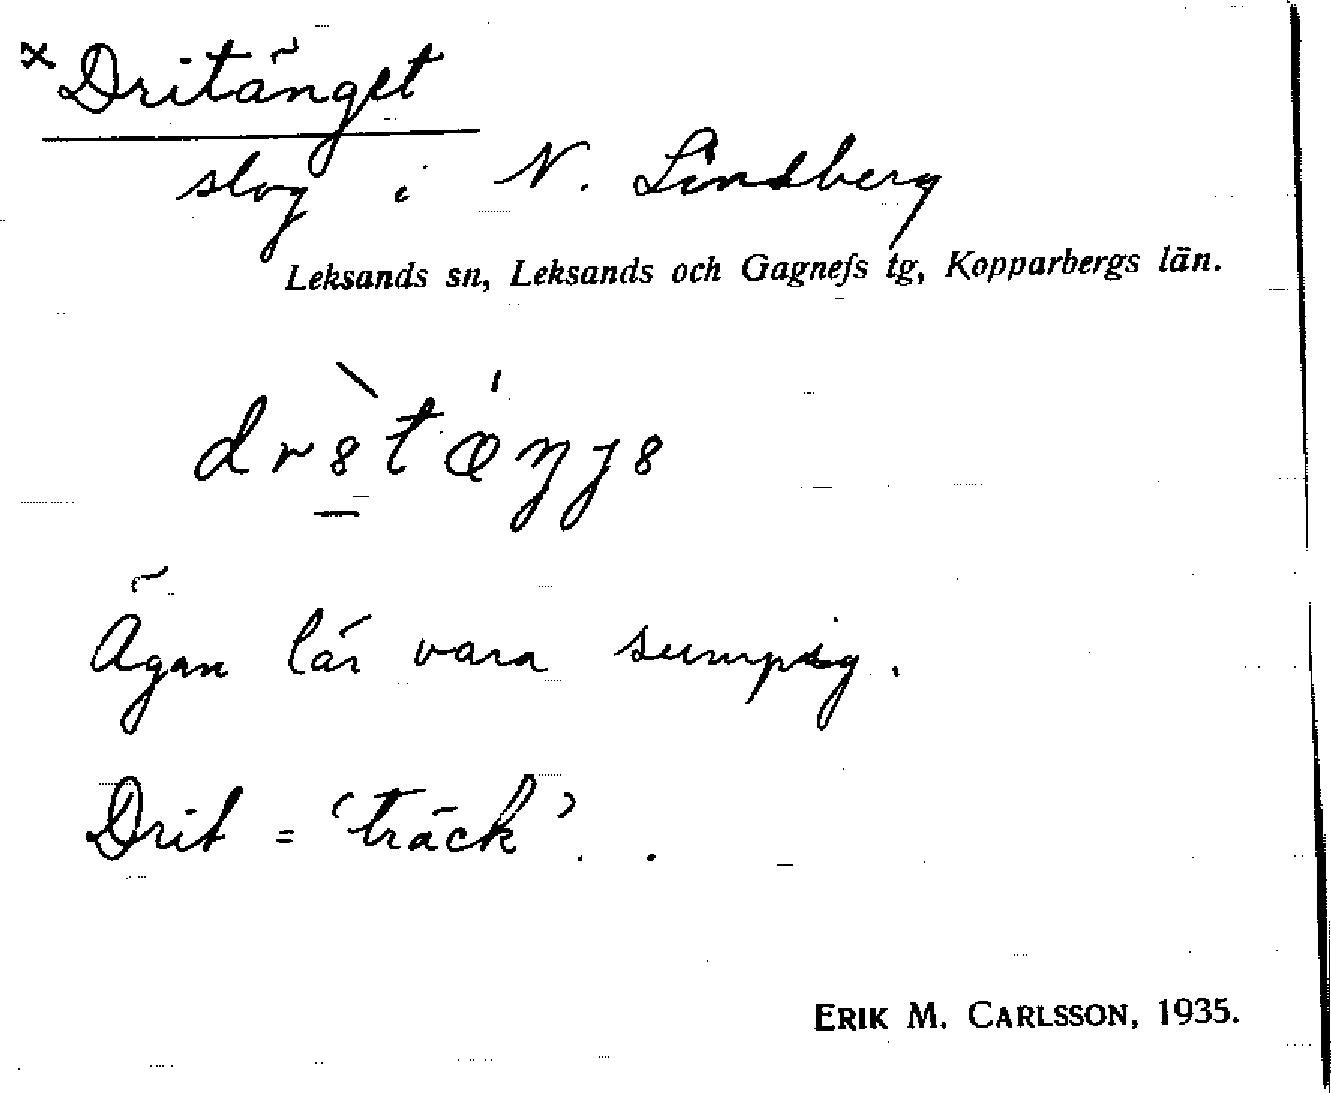 × Dritänget
slog i N. Lindberg
Leksands sn, Leksands och Gagnefs tg, Kopparbergs län.
Ägan lär vara sumpig.
Drit = 'träck'.
ERIK M. CARLSSON, 1935.